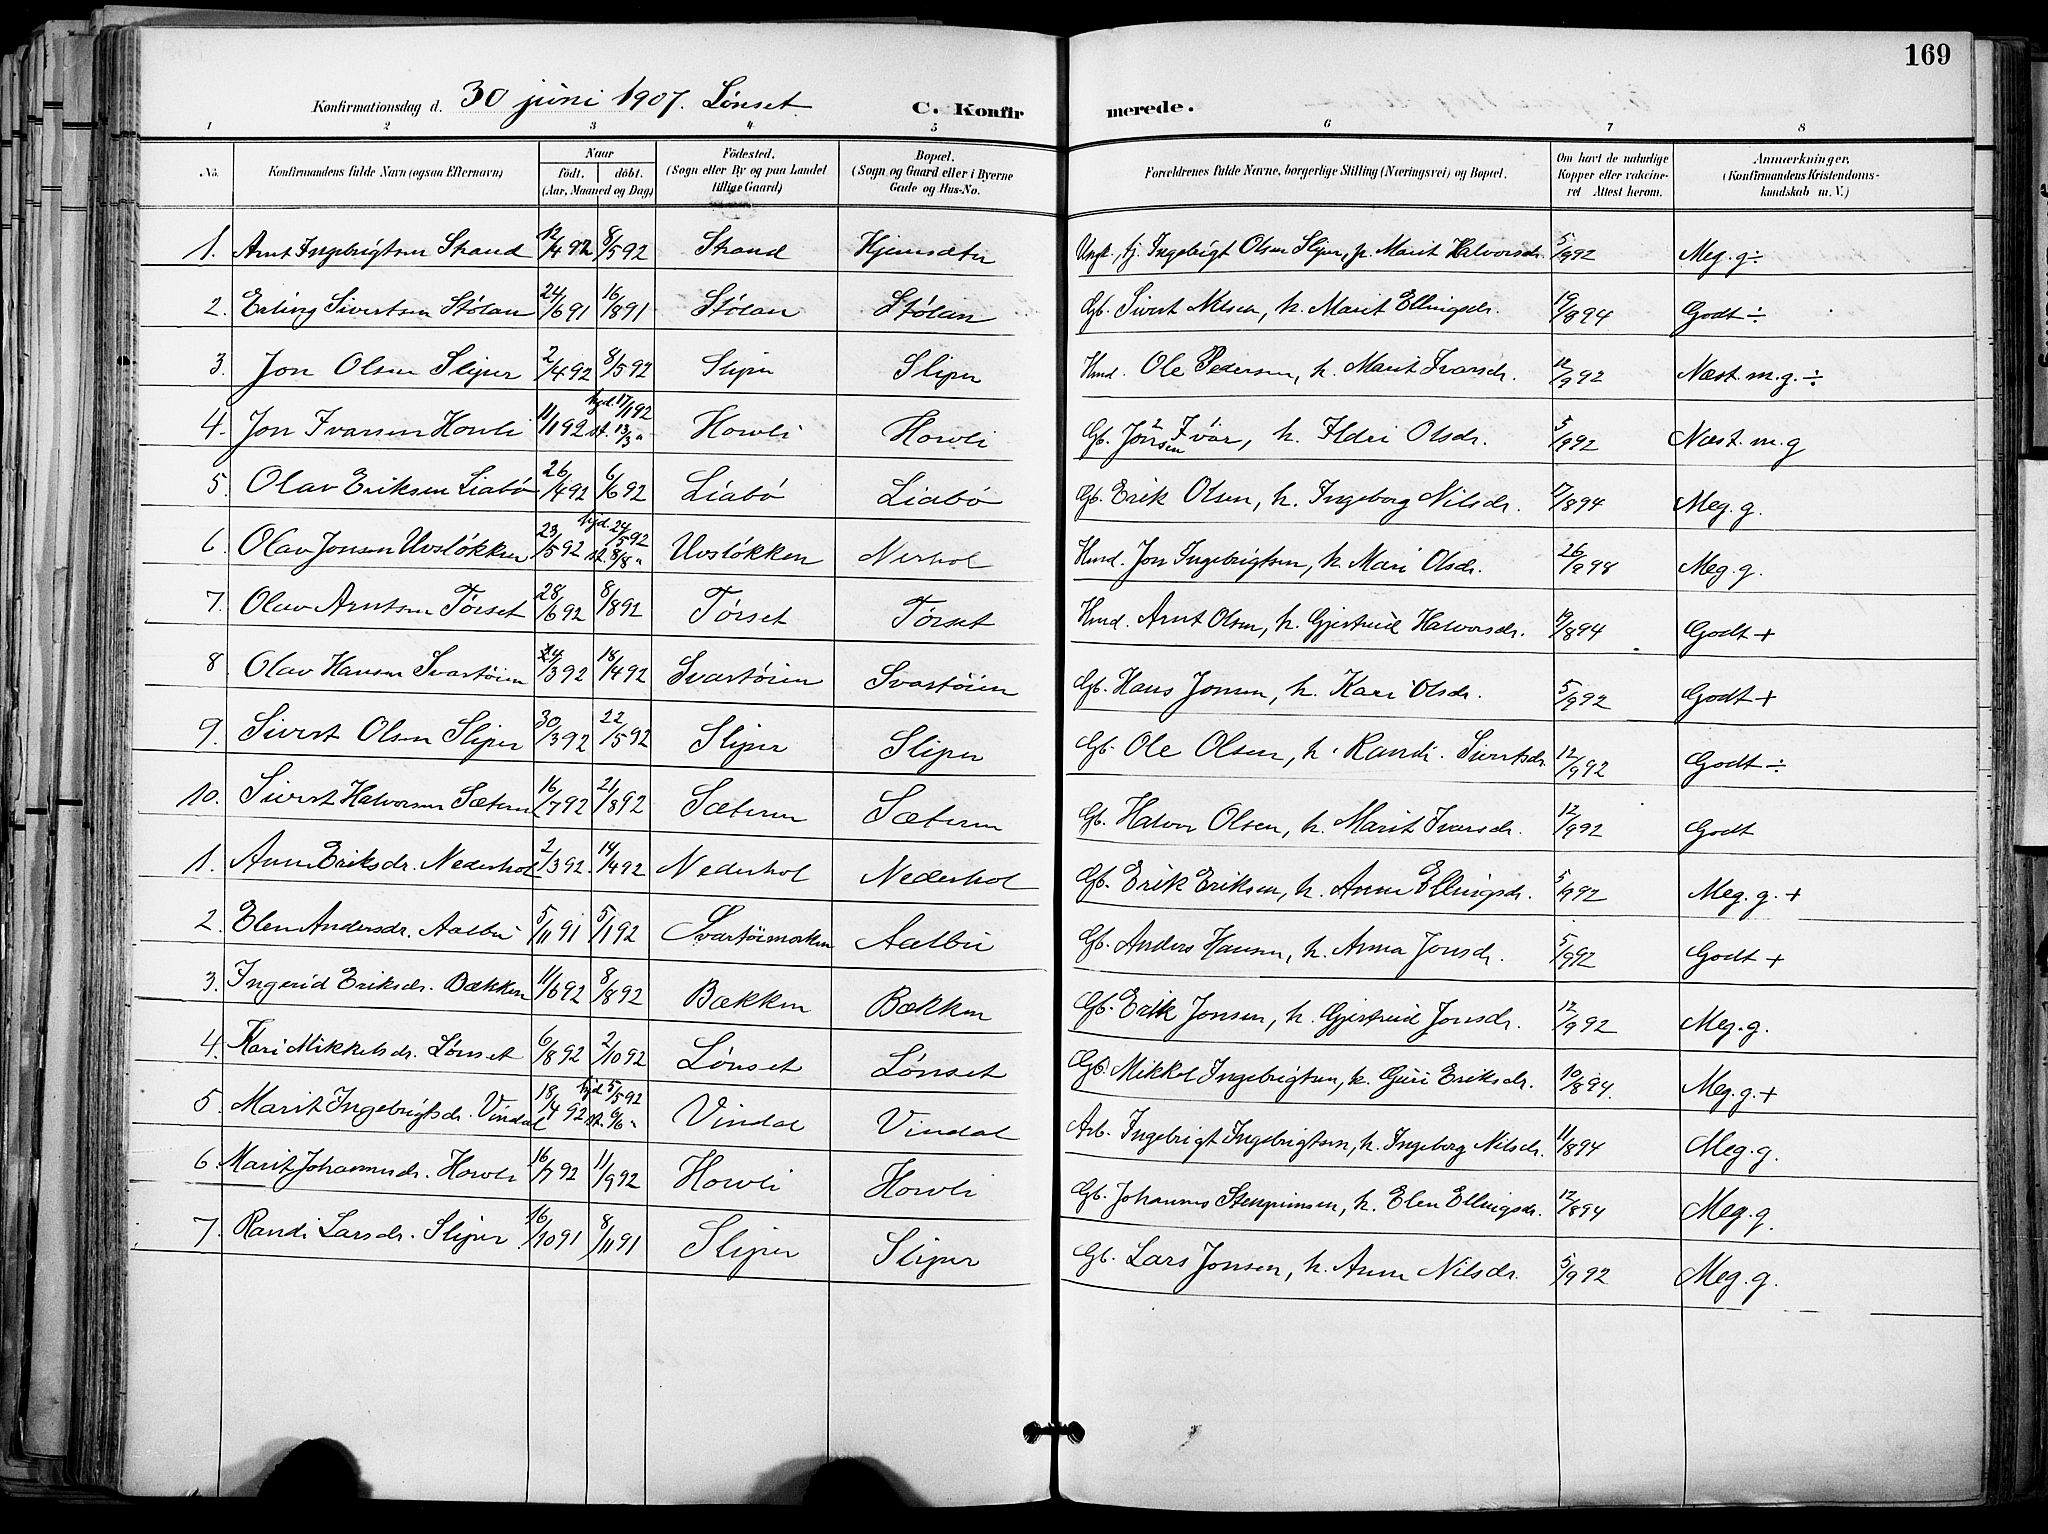 169
Konfirmationsdag d. 30 juni 1907. Lönset.
C. Konfirmerede.
1 2 3 4 5 6 7 8
No. Konfirmandens fulde Navn (ogsaa Efternavn) Naar födt. döbt. (Aar, Maaned og Dag) Födested. (Sogn eller By og paa Landet tillige Gaard) Bopæl. (Sogn og Gaard eller i Byerne Gade og Hus-No. Forældrenes fulde Navne, borgerlige Stilling (Næringsvei) og Bopæl. Om havt de naturlige Kopper eller vakcineret Attest herom. Anmærkninger. (Konfirmandens Kristendomskundskab m. V.)
1. Arnt Ingebrigtsen Strand 12/4 92 8/5 92 Strand Hjemsæter Ungk., tj. Ingebrigt Olsen Sliper, p. Marit Halvorsdr. 5/9 92 Meg. g ÷
2. Erling Sivertsen Stölan 24/6 91 16/8 91 Stölan Stölan Gb. Sivert Nilsen, h. Marit Ellingsdr. 19/8 94 Godt ÷
3. Jon Olsen Sliper 2/4 92 8/5 92 Sliper Sliper Hmd. Ole Pedersen, h. Marit Ivarsdr. 12/9 92 Næst. m. g. ÷
4. Jon Ivarsen Horvli 11/1 92 hjd. 17/1 92 st. 13/3 " Horvli Horvli Gb. Jonsen 2 Ivar 1, h. Ildri Olsdr. 5/9 92 Næst. m. g
5. Olav Eriksen Liabö 26/4 92 6/6 92 Liabö Liabö Gb. Erik Olsen, h. Ingeborg Nilsdr. 17/8 94 Meg. g.
6. Olav Jonsen Uvslökken 23/5 92 hjd. 24/5 92 st. 8/8 " Uvslökken Nerhol Hmd. Jon Ingebrigtsen, h. Mari Olsdr. 26/2 98 Meg. g.
7. Olav Arntsen Törset 28/6 92 8/8 92 Törset Törset Hmd. Arnt Olsen, h. Gjertrud Halvorsdr. 19/8 94 Godt +
8 Olav Hansen Svartöien 24/3 92 18/4 92 Svartöien Svartöien Gb. Hans Jonsen, h. Kari Olsdr. 5/9 92 Godt +
9. Sivert Olsen Sliper 30/3 92 22/5 92 Sliper Sliper Gb. Ole Olsen, h. Randi Sivertsdr. 12/9 92 Godt ÷
10. Sivert Halvorsen Sæteren 16/7 92 21/8 92 Sæteren Sæteren Gb. Halvor Olsen, h. Marit Ivarsdr. 12/9 92 Godt
1. Anne Eriksdr. Nederhol 2/3 92 14/4 92 Nederhol Nederhol Gb. Erik Eriksen, h. Anne Ellingsdr. 5/9 92 Meg. g. +
2. Elen Andersdr. Aalbu 5/11 91 5/1 92 Svartöimoeken Aalbu Gb. Anders Hansen, h. Anna Jonsdr. 5/9 92 Godt +
3. Ingerid Eriksdr. Bækken 11/6 92 8/8 92 Bækken Bækken Gb. Erik Jonsen, h. Gjertrud Jonsdr. 12/9 92 Meg. g.
4. Kari Mikkelsdr. Lönset 6/8 92 2/10 92 Lönset Lönset Gb. Mikkel Ingebrigtsen, h. Guri Eriksdr. 10/8 94. Meg. g. +
5. Marit Ingebrigtsdr. Vindal 18/4 92 hjd 5/5 92 st. 6/6 " Vindal Vindal Arb. Ingebrigt Ingebrigtsen, h. Ingeborg Nilsdr. 11/8 94 Meg. g.
6 Marit Johannesdr. Horvli 16/7 92 11/9 92 Horvli Horvli Gb. Johannes Stengrimsen, h. Elen Ellingsdr. 12/8 94 Meg. g.
7. Randi Larsdr. Sliper 16/10 91 8/11 91 Sliper Sliper Gb. Lars Jonsen, h. Anne Nilsdr. 5/9 92 Meg. g.